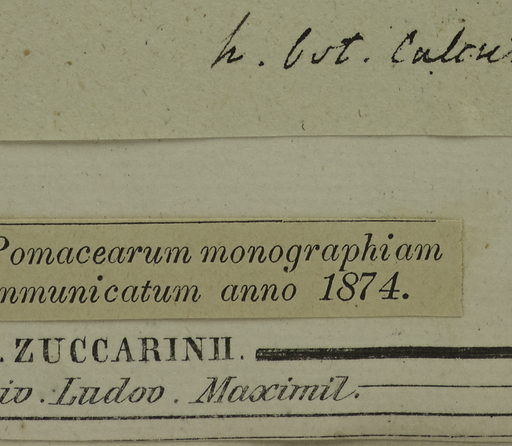 h. bot. Calcu
Pomacearum monographiam
mmunicatum anno 1874.
. ZUCCARINII.
iv. Ludov. Maximil.